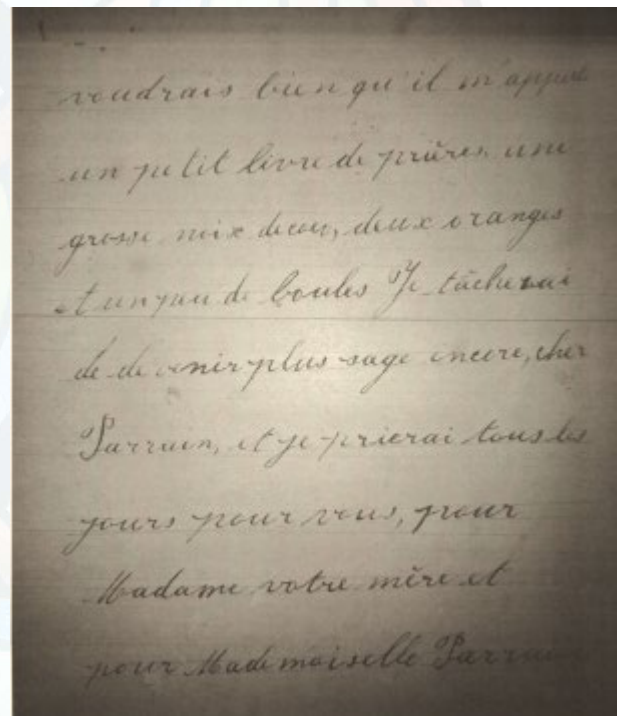 voudrais bien qu'il m'apporte
un petit livre de prières, une
grosse noix de coco, deux oranges
et un peu de boules Je tâcherai
de devenir plus sage encore, cher
Parrain, et je prierai tous les
jours pour vous, pour
Madame votre mère et
pour Mademoiselle Parrain